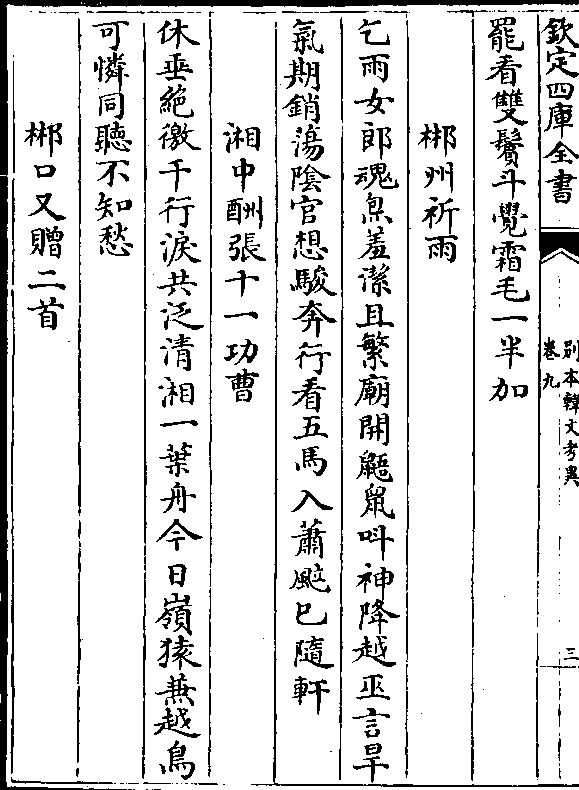 欽定四庫全書
別本韓文考異
卷九
三
罷看雙鬢斗覺霜毛一半加
郴州祈雨
乞雨女郎魂炰羞潔且繁廟開鼯鼠叫神降越巫言旱
氣期銷蕩陰官想駿奔行看五馬入蕭颯已隨軒
湘中酬張十一功曹
休垂絶徼千行淚共泛清湘一葉舟今日嶺猿兼越鳥
可憐同聽不知愁
郴口又贈二首